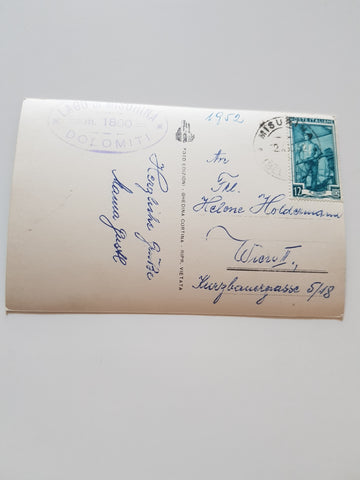 LAGO di MISURINA
m. 1800
DOLOMITI
1952
MISURINA
POSTE ITALIANE
12
An
Frl.
Helene Holdermann
Wien II.,
Kurzbauergasse 5/18
FOTO EDIZIONI - GHEDINA CORTINA - RIPR. VIETATA
Herzliche Grüße